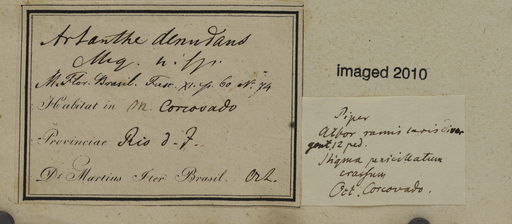 Artanthe denudans
Miq. n. sp.
M. Flor. Brasil. Fasc. XI. p. 60 No. 74
Habitat in M. Corcovado
Provinciae Rio d. J.
Dr. Martius Iter Brasil. Oct.
imaged 2010
Piper
Arbor ramis laxis diver
gent. 12 ped.
Stigma penicillatum
crassum
Oct. Corcovado.